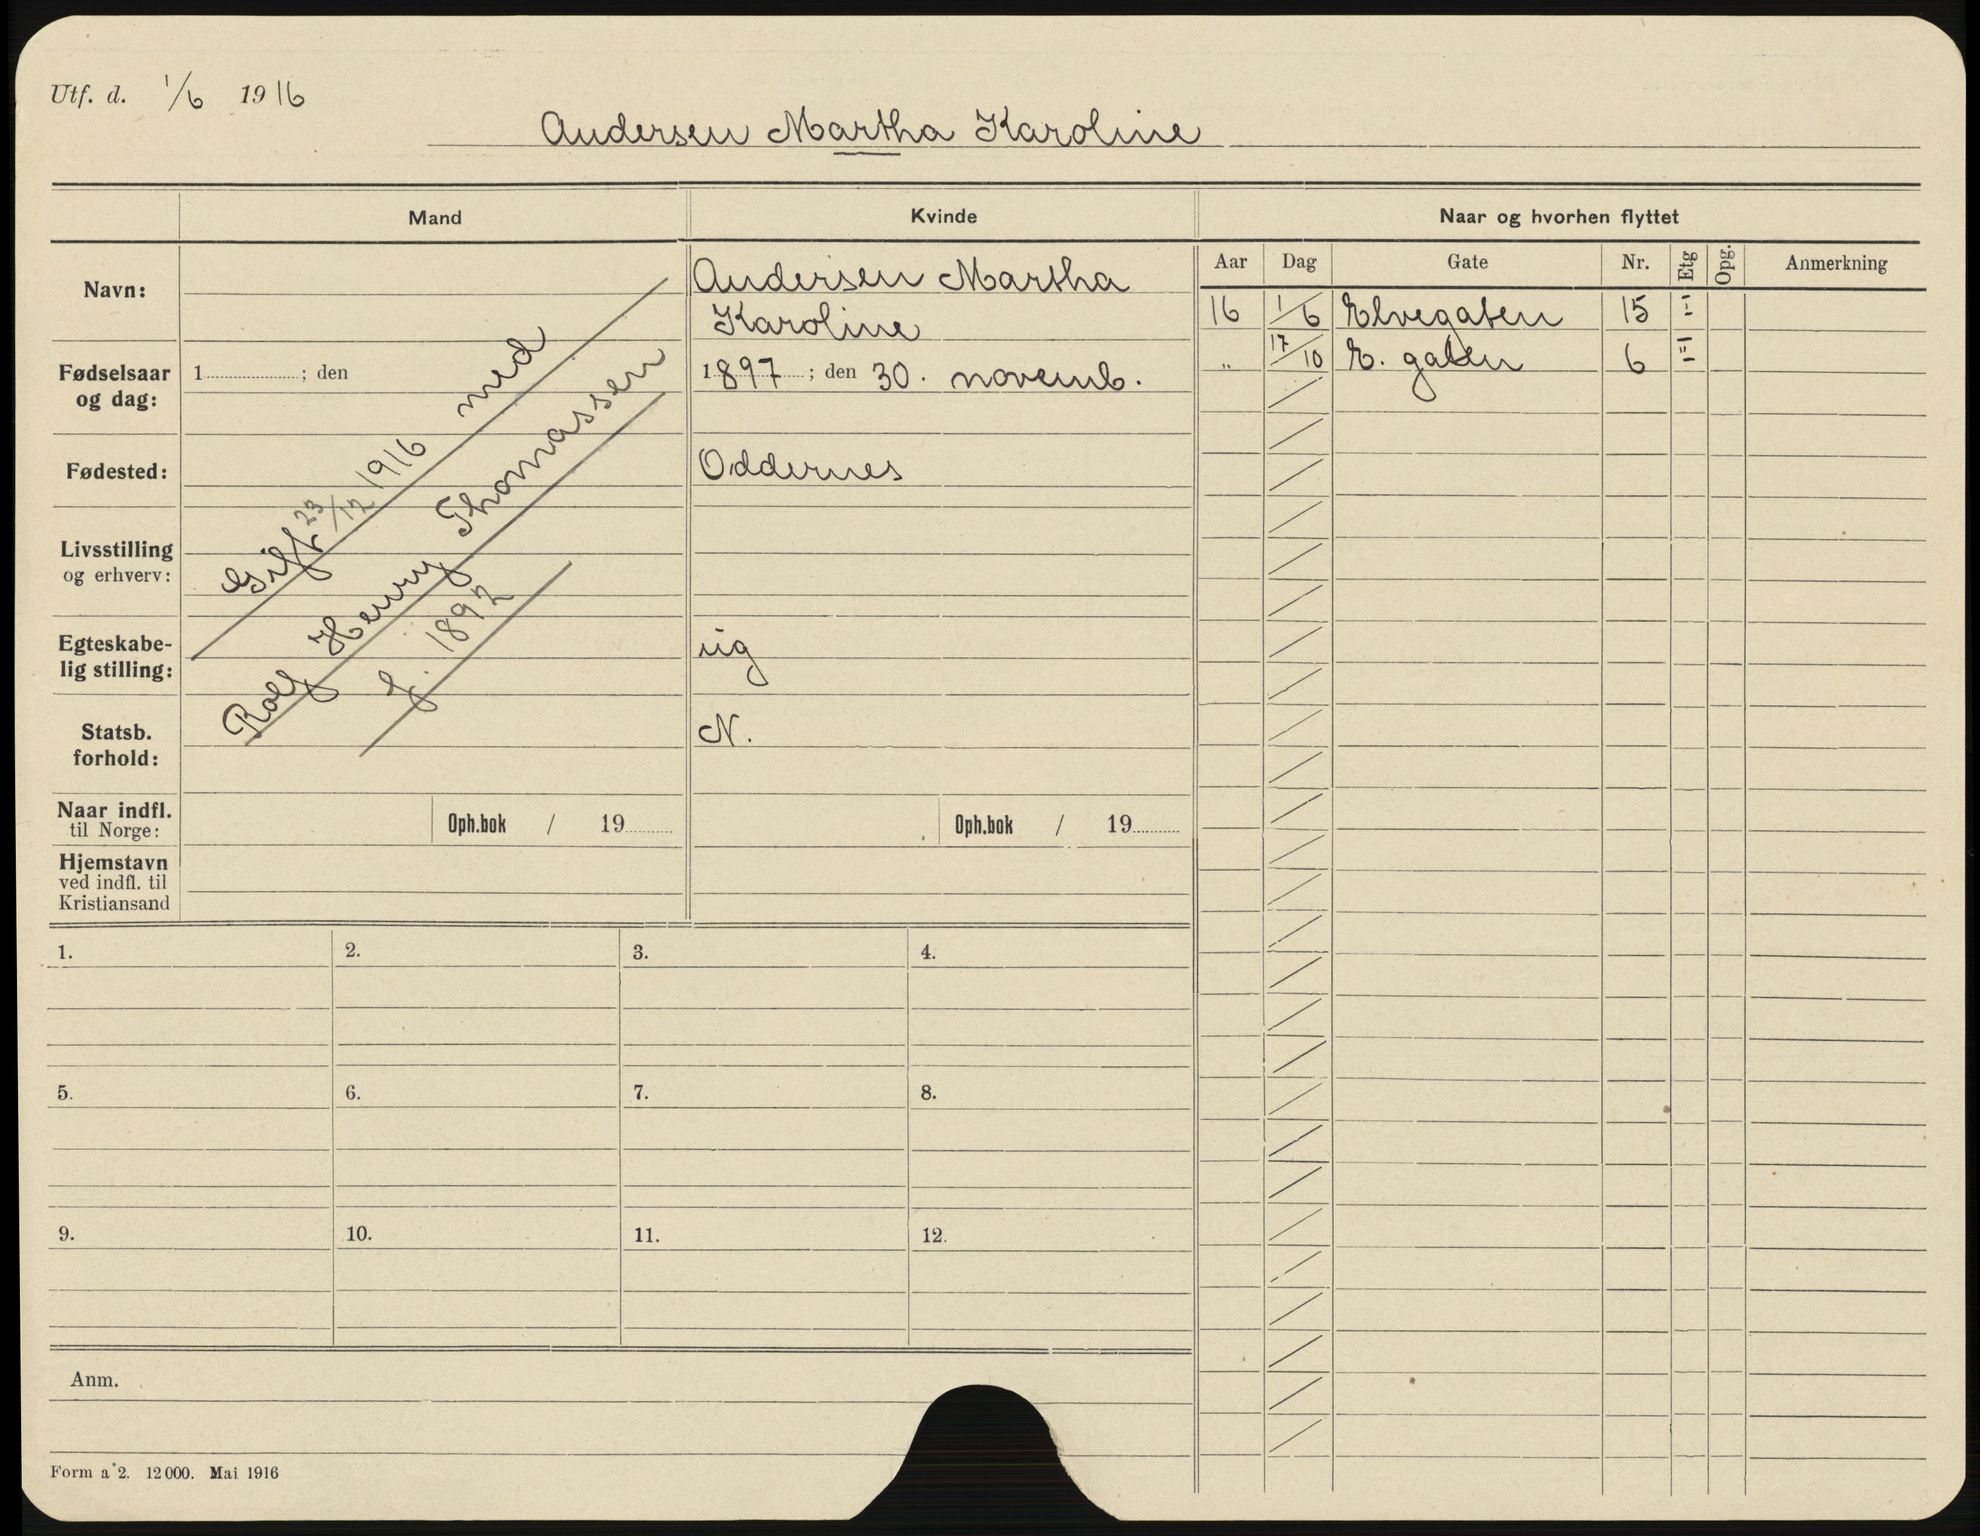 Utf. d. 1/6 1916
Andersen Martha Karoline
Mand Kvinde Naar og hvorhen flyttet
Aar Dag Gate Nr. Etg Opg. Anmerkning
Navn: Andersen Martha
Karoline
16 1/6 Elvegaten 15 I
„ 17/10 E. gaten 6 II
Fødselsaar
og dag:
1 ; den
1897 ; den 30. novemb.
Fødested: Oddernes
Livsstilling
og erhverv:
Egteskabe-
lig stilling:
ug
Statsb.
forhold:
N.
Gift 23/12 1916 med
Rolf Henry Thomassen
f. 1892
Naar indfl.
til Norge:
Oph.bok / 19
Oph.bok / 19
Hjemstavn
ved indfl. til
Kristiansand
1. 2. 3. 4.
5. 6. 7. 8.
9. 10. 11. 12.
Anm.
Form a 2. 12000. Mai 1916